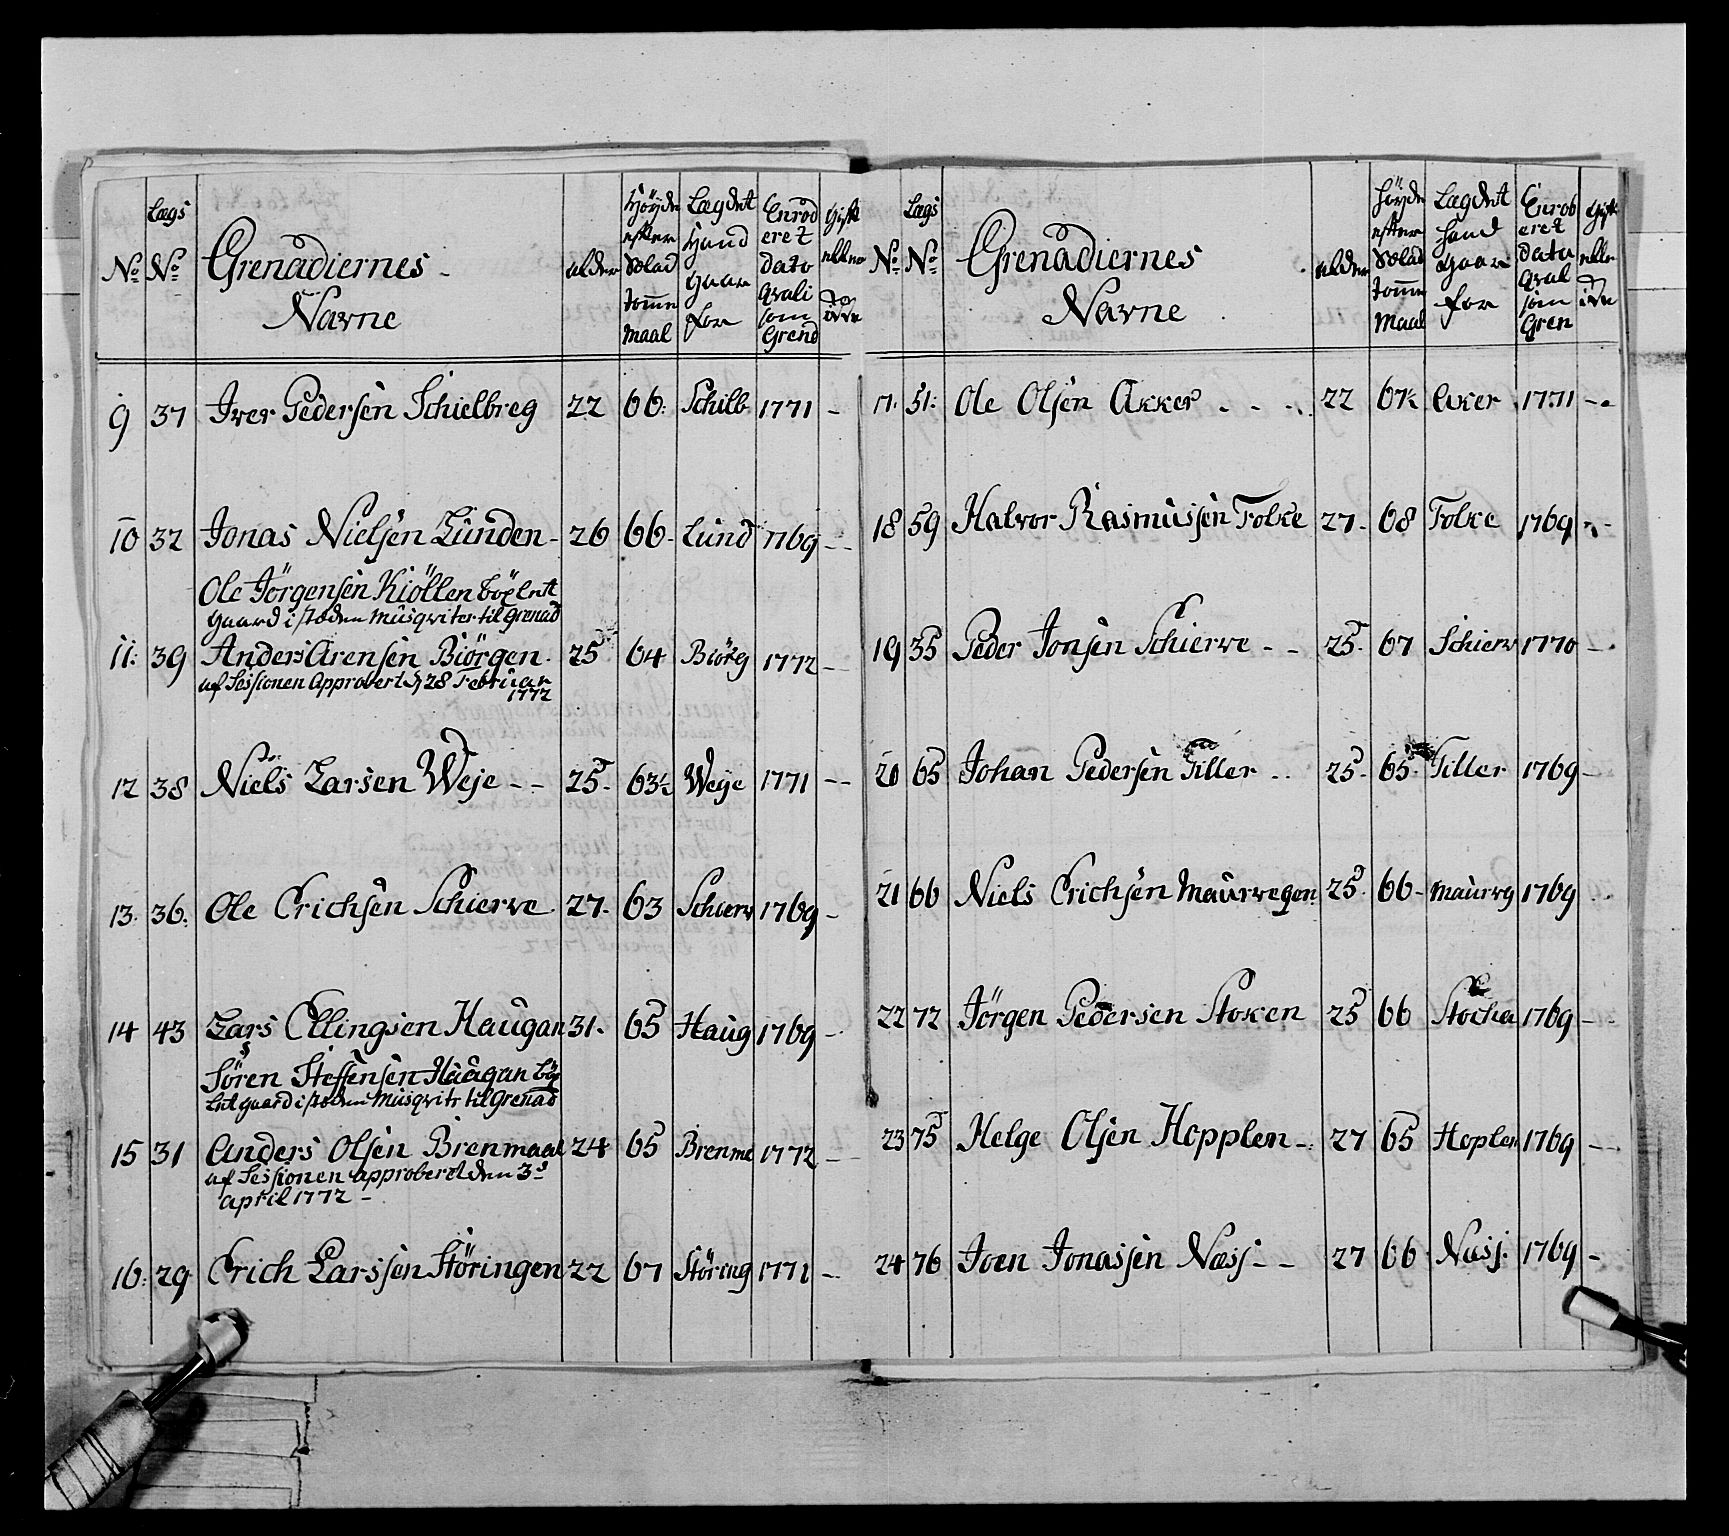 No Lægs No Grenadiernes Navne alder Höyde efter Sælad tomme Maal Lægdet Hand gaar for Enrod eret Dato qvali som Grend Gift eller
9 37 Iver Pedersen Schielbreg 22 66: Schilb 1771 -
10 32 Jonas Nielsen Lunden - 26 66 - Lund 1769 - -
Ole Jörgensen Kiöllen
gaard i stæden Musqviter til Grenad
11: 39 Anders Arensen Biörgen. 25 64 Biörg 1772 -
af Sessionen Approbert d 28 Februar
1772
12 38 Niels Larsen Weje - - 25. 63½ Wege 1771 - -
13. 36. Ole Erichsen Schierve 27. 63 Schierv 1769 -
14 43 Lars Ellingsen Haugan 31. 65 Haug 1769 -
Sören Steffensen Haagan
gaard i stæden Musqvitr til Grenad
15 31 Anders Olsen Brenmaal 24 65 Brenme 1772 -
af Sessionen approberet den 3d
april 1772 -
16: 29 Erich Larssen Störingen 22 67 Störing 1771 -
No Lægs No Grenadiernes Navne alder Höyde efter Sælad tomme Maal Lægdet hand gaar for Enrod eret Data qval som Gren Gift elle
17. 51. Ole Olsen Akker - - - 22 67½ Aker 1771 - -
18 59 Halvor Rasmussen Folke 27 - 68 Folke 1769 - -
19 35 Peder Jonsen Schierve - - 25. 67 Schierv 1770 -
20 65 Johan Pedersen Tiller - - 25. 65. Tiller 1769 -
21 66 Niels Erichsen Maurvegen 25. 66 - Maurvg 1769
22 72 Jörgen Pedersen Stoken 25 66 Stocha 1769 - -
23 75 Helge Olsen Hopplen - 27 65 Hoplen 1769 - -
24 76 Joen Jonassen Næss - - 27 66 Næss. 1769 -